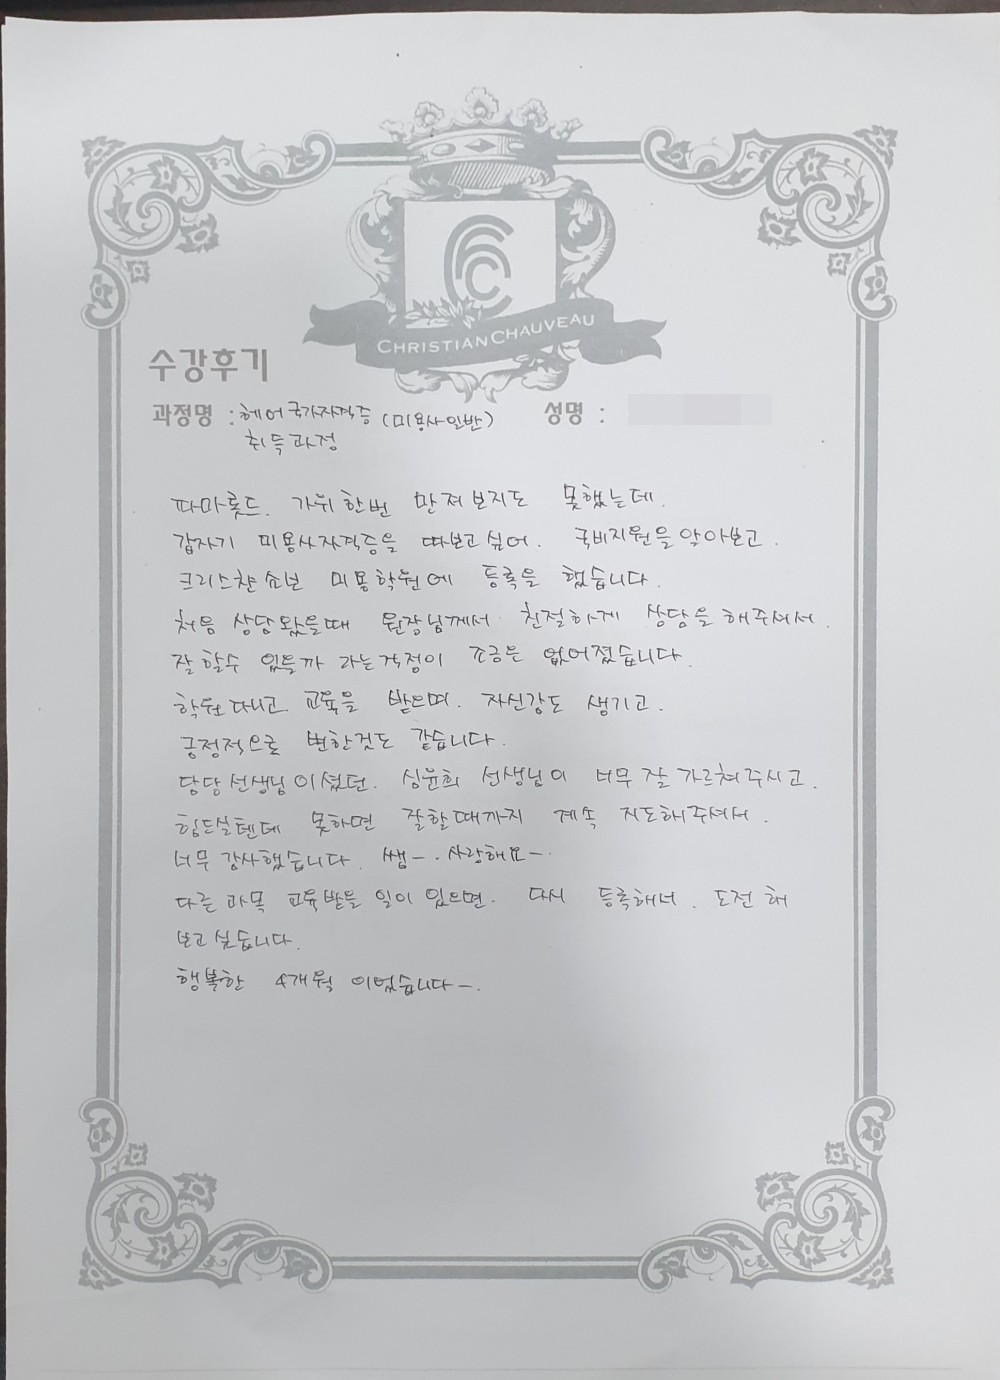 CHRISTIAN CHAUVEAU
수강후기
과정명 : 헤어국가자격증 (미용사일반) 성명 :
취득과정
파마롯드. 가위한번 만져보지도 못했는데.
갑자기 미용사자격증을 따보고 싶어. 국비지원을 알아보고.
크리스챤쇼보 미용학원에 등록을 했습니다.
처음 상담왔을때 원장님께서 친절하게 상담을 해주셔서.
잘 할수 있을까 라는걱정이 조금은 없어졌습니다.
학원다니고 교육을 받으며. 자신감도 생기고.
긍정적으로 변한것도 같습니다.
담당선생님이셨던. 심윤희 선생님이 너무 잘 가르쳐주시고.
힘드실텐데 못하면 잘할때까지 계속 지도해주셔서.
너무 감사했습니다. 쌤ㅡ. 사랑해요ㅡ.
다른 과목 교육받을 일이 있으면. 다시 등록해서. 도전 해
보고 싶습니다.
행복한 4개월 이었습니다ㅡ.